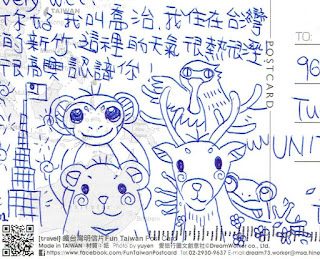 very w
你好，我叫喬治，我住在台灣
的新竹，這裡的天氣很熱很溼
很高興認識你！
TAIWAN
POSTCARD
TO:
96
Tu
UNIT
[travel] 瘋台灣明信片Fun Taiwan Post Card
Made in TAIWAN 材質：紙 Photo by yuyen 愛旅行圖文創意社©DreamWorker Co., Ltd.
https://www.facebook.com/FunTaiwanPostcard Tel 02-2930-9637 E-mail dream73.worker@msa.hine